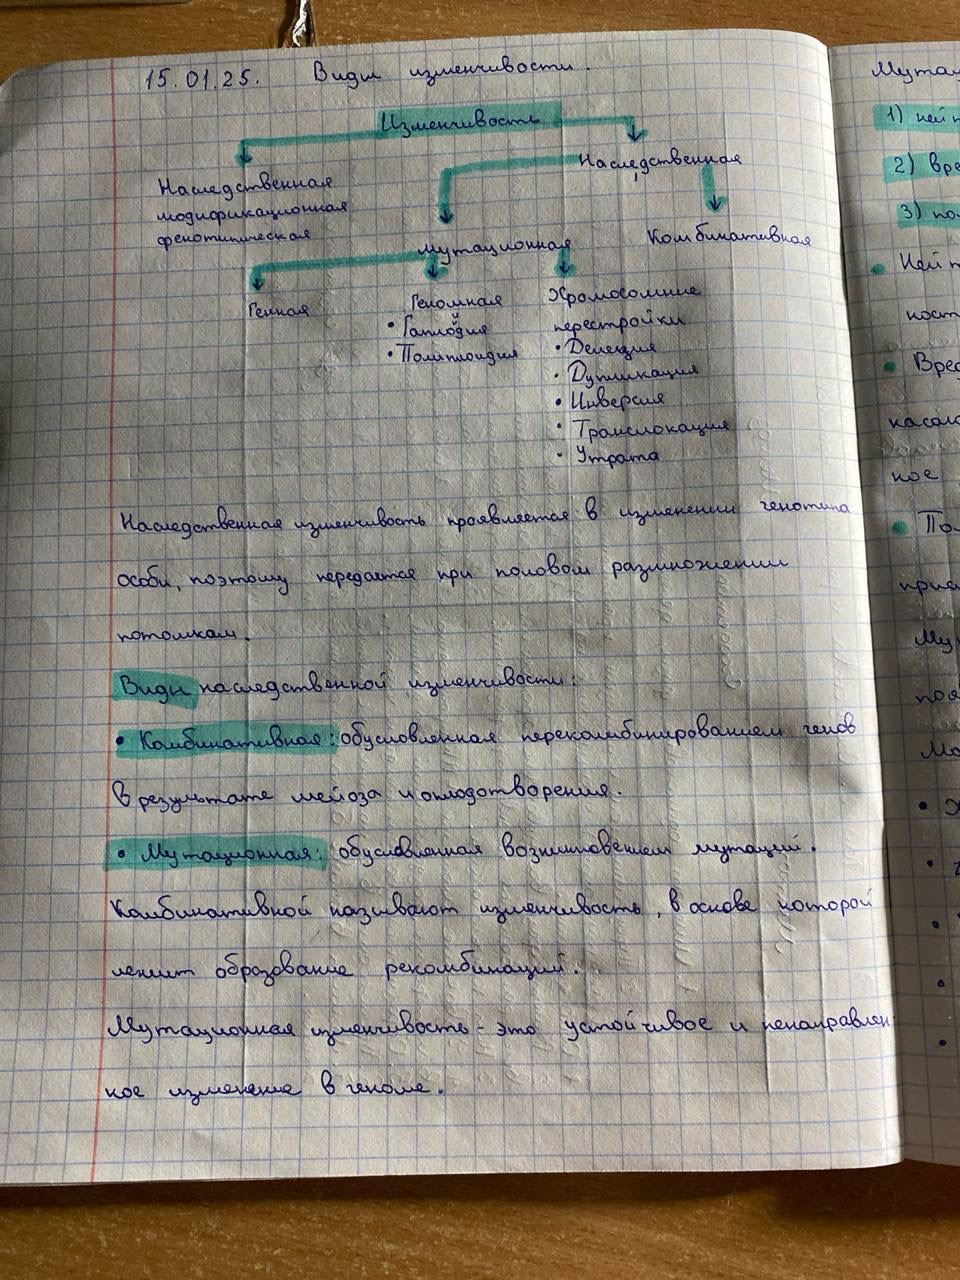 15.01.25. Виды изменчивости.
Изменчивость
Наследственная
модификационная
фенотипическая
Наследственная
Мутационная
Комбинативная
Генная
Геномная
• Гаплоидия
• Полиплоидия
Хромосомные
перестройки
• Делеция
• Дупликация
• Инверсия
• Транслокация
• Утрата
Наследственная изменчивость проявляется в изменении генотипа
особи, поэтому передаётся при половом размножении
потомкам.
Виды наследственной изменчивости:
• Комбинативная: обусловленная перекомбинированием генов
в результате мейоза и оплодотворения.
• Мутационная: обусловленная возникновением мутаций.
Комбинативной называют изменчивость, в основе которой
лежит образование рекомбинаций.
Мутационная изменчивость - это устойчивое и ненаправлен-
ное изменение в геноме.
1)
2)
3)